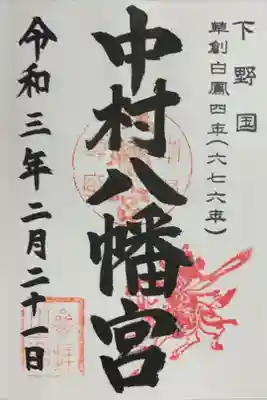 下野国
草創白鳳四年(六七六年)
中村八幡宮
令和三年二月二十一日